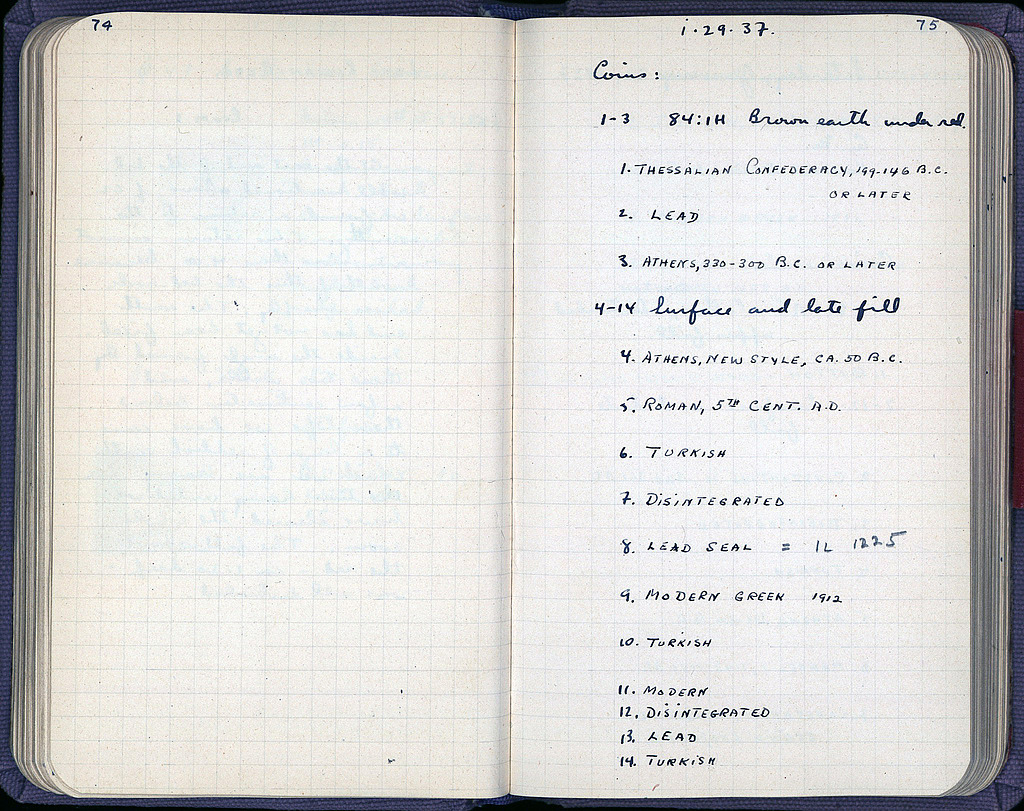 74
1·29·37.
75
Coins:
1-3 84:1H Brown earth under red.
1. THESSALIAN CONFEDERACY, 199-146 B.C.
OR LATER
2. LEAD
3. ATHENS, 330-300 B.C. OR LATER
4-14 Surface and late fill
4. ATHENS, NEW STYLE, CA. 50 B.C.
5. ROMAN, 5TH CENT. A.D.
6. TURKISH
7. DISINTEGRATED
8. LEAD SEAL = IL 1225
9. MODERN GREEK 1912
10. TURKISH
11. MODERN
12. DISINTEGRATED
13. LEAD
14. TURKISH